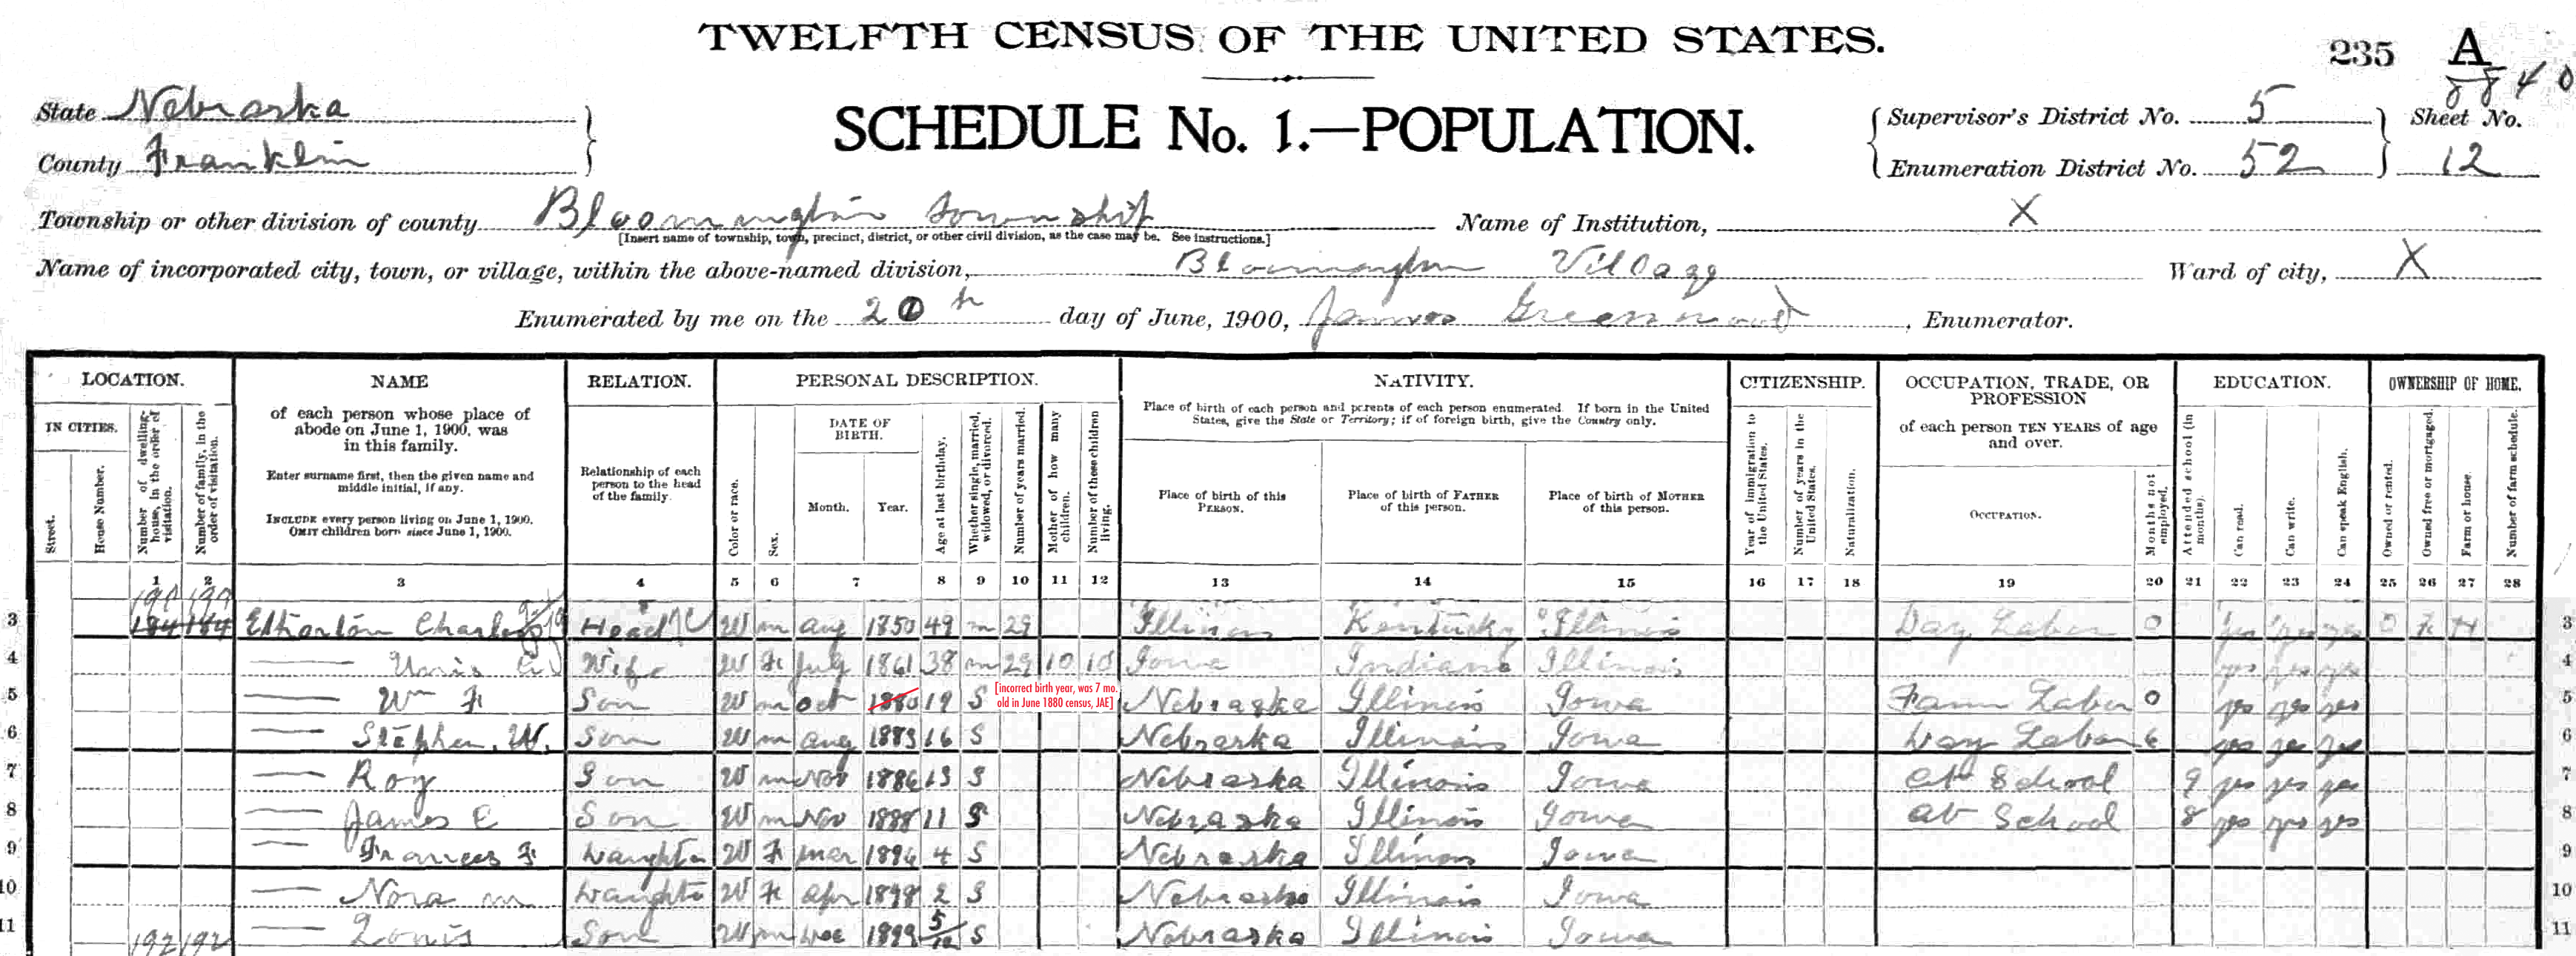 TWELFTH CENSUS OF THE UNITED STATES.
235 A
8840
State Nebraska
County Franklin
SCHEDULE No. 1.—POPULATION.
Supervisor's District No. 5
Enumeration District No. 52
Sheet No.
12
Township or other division of county Bloomington Township Name of Institution, X
[Insert name of township, town, precinct, district, or other civil division, as the case may be. See instructions.]
Name of incorporated city, town, or village, within the above-named division, Bloomington Village Ward of city, X
Enumerated by me on the 20th day of June, 1900, James Greenwood, Enumerator.
LOCATION. NAME RELATION. PERSONAL DESCRIPTION. NATIVITY. CITIZENSHIP. OCCUPATION, TRADE, OR PROFESSION EDUCATION. OWNERSHIP OF HOME.
IN CITIES.
Street.
House Number.
Number of dwelling house, in the order of visitation.
Number of family, in the order of visitation.
of each person whose place of abode on June 1, 1900, was in this family.
Enter surname first, then the given name and middle initial, if any.
INCLUDE every person living on June 1, 1900. OMIT children born since June 1, 1900.
Relationship of each person to the head of the family.
Color or race.
Sex.
DATE OF BIRTH.
Month. Year.
Age at last birthday.
Whether single, married, widowed, or divorced.
Number of years married.
Mother of how many children.
Number of these children living.
Place of birth of each person and parents of each person enumerated. If born in the United States, give the State or Territory; if of foreign birth, give the Country only.
Place of birth of this PERSON.
Place of birth of FATHER of this person.
Place of birth of MOTHER of this person.
Year of immigration to the United States.
Number of years in the United States.
Naturalization.
of each person TEN YEARS of age and over.
OCCUPATION.
Months not employed.
Attended school (in months).
Can read.
Can write.
Can speak English.
Owned or rented.
Owned free or mortgaged.
Farm or house.
Number of farm schedule.
1 2 3 4 5 6 7 8 9 10 11 12 13 14 15 16 17 18 19 20 21 22 23 24 25 26 27 28
3 184 184 Etherton Charles Head W m Aug 1850 49 m 29 Illinois Kentucky Illinois Day Labor 0 yes yes yes O F H 3
4 Wife W F July 1861 38 m 29 10 10 Iowa Indiana Illinois yes yes yes 4
5 Wm F Son W m Oct 1880 19 S [incorrect birth year, was 7 mo. old in June 1880 census, JAE] Nebraska Illinois Iowa Farm Labor 0 yes yes yes 5
6 Stephen. W. Son W m Aug 1883 16 S Nebraska Illinois Iowa Day Labor 6 yes yes yes 6
7 Roy Son W m Nov 1886 13 S Nebraska Illinois Iowa At School 9 yes yes yes 7
8 James E Son W m Nov 1888 11 S Nebraska Illinois Iowa At School 8 yes yes yes 8
9 Frances F Daughter W F Mar 1896 4 S Nebraska Illinois Iowa 9
10 Nora M Daughter W F Apr 1898 2 S Nebraska Illinois Iowa 10
11 192 192 Louis Son W m Dec 1899 5/12 S Nebraska Illinois Iowa 11